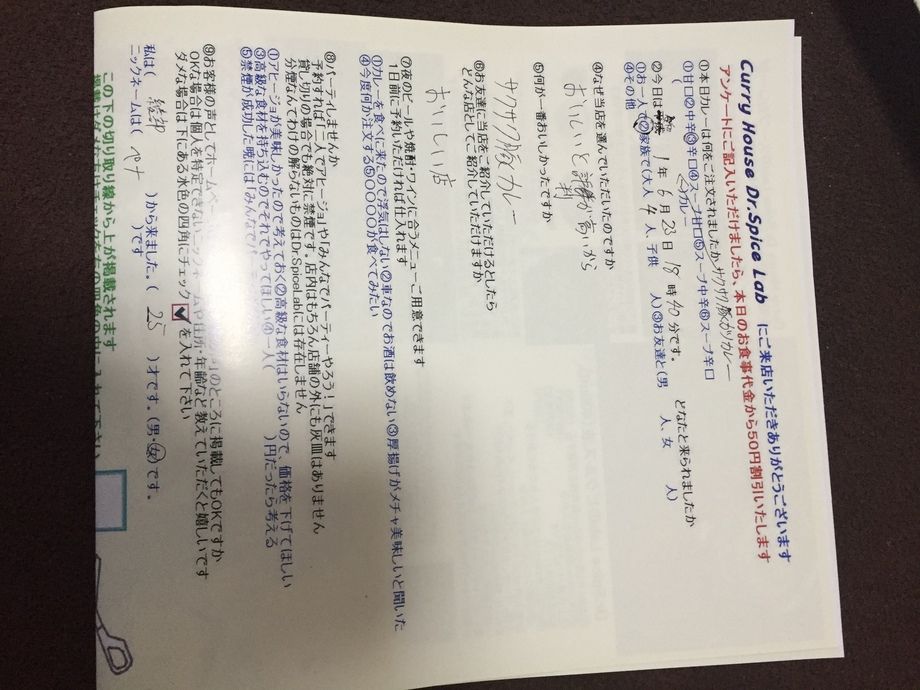 Curry House Dr.Spice Lab にご来店いただきありがとうございます
アンケートにご記入いただけましたら、本日のお食事代金から50円割引いたします
①本日カレーは何をご注文されましたか サクサク豚バラカレー
①甘口②中辛③辛口④スープ甘口⑤スープ中辛⑥スープ辛口
②今日は 1年 6月 23日 18時 40分です。 どなたと来られましたか
①お一人で②ご家族で(大人 4人、子供 人)③お友達と(男 人、女 人)
④その他(
④なぜ当店を選んでいただいたのですか
おいしいと評判が高いから
⑤何が一番おいしかったですか
サクサク豚カレー
⑥お友達に当店をご紹介していただけるとしたら
どんな店としてご紹介していただけますか
おいしい店
⑦夜のビールや焼酎・ワインに合うメニューご用意できます
1日前に予約いただければ仕入れます
①カレーを食べに来たので浮気はしない②車なのでお酒は飲めない③厚揚げがメチャ美味しいと聞いた
④今度何か注文する⑤○○○○が食べてみたい
⑧パーティしませんか
予約すれば二人でアヒージョや「みんなでパーティーやろう！」できます
貸し切りの場合でも絶対に禁煙です。店内はもちろん店舗の外にも灰皿はありません
分煙なんてわけの解らないものはDr.SpiceLabには存在しません
①アヒージョが美味しかったので考えておく②高級な食材はいらないので、価格を下げてほしい
③高級な食材を持ち込むのでそれでやってほしい④一人( )円だったら考える
⑤禁煙が成功した暁には「みんなで
⑨お客様の声としてホームペー のところに掲載してもOKですか
OKな場合は個人を特定できないニックネームや住所・年齢など教えていただくと嬉しいです
ダメな場合は下にある水色の四角にチェック を入れて下さい
私は( )から来ました。( 25 )才です。(男・女)です。
ニックネームは( )です
この下の切り取り線から上が掲載されます